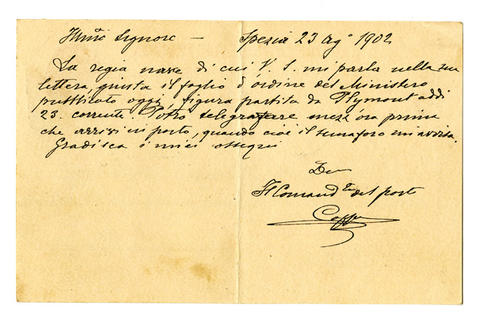 Illmo Signore — Spezia 23 Ago 1902
La regia nave di cui V. S. mi parla nella sua
lettera, giusta il foglio d'ordine del Ministero
pubblicato oggi, figura partita da Plymont addì
23. corrente. Potrò telegrafare mezz'ora prima
che arrivi in porto, quando cioè il semaforo mi avvisa.
Gradisca i miei ossequi
Il Comandte del porto